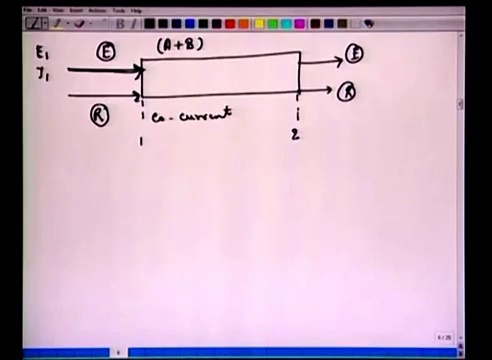 File Edit View Insert Actions Tools Help
B
(A+B)
E1
E
E
Y1
R
R
co-current
1
2
6
6 / 25